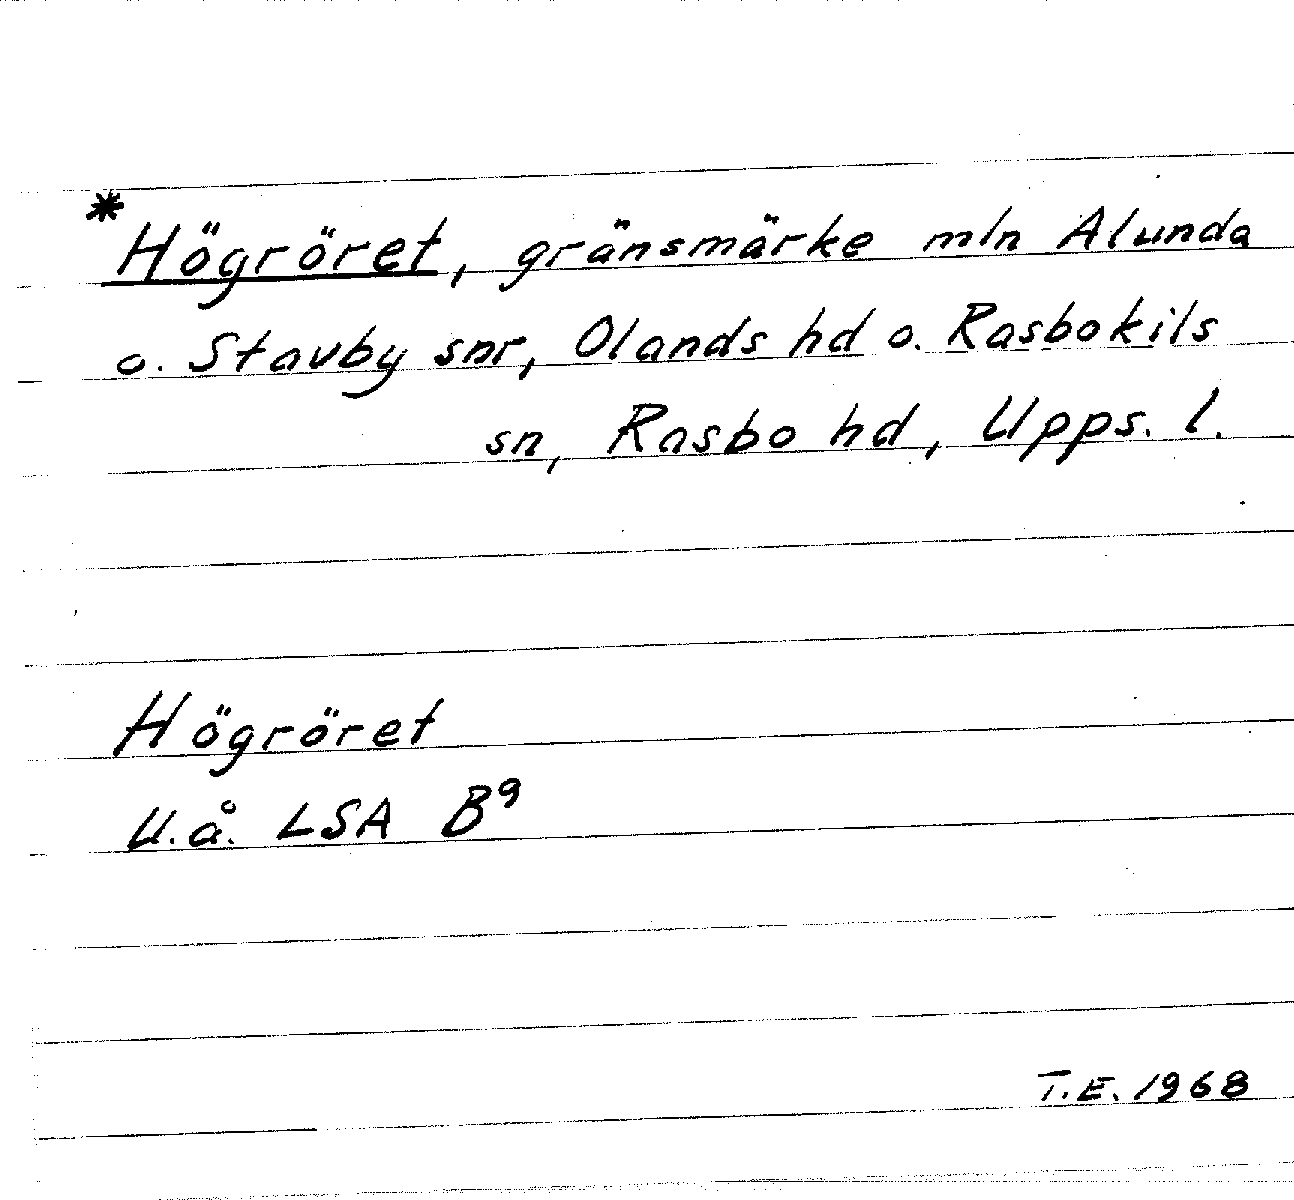 *Högröret, gränsmärke mln Alunda
o. Stavby snr, Olands hd o. Rasbokils
sn, Rasbo hd, Upps. l.
Högröret
U.å. LSA B⁹
T.E. 1968